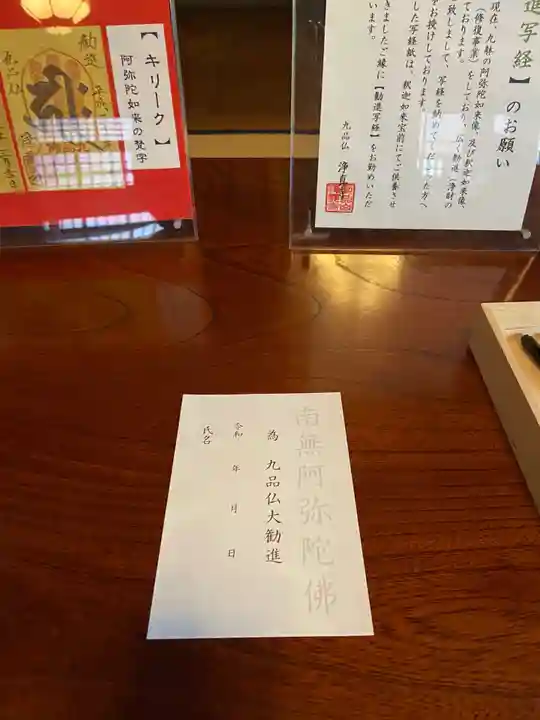 【キリーク】
阿弥陀如来の梵字
勧進
進写経】のお願い
現在、九躰の阿弥陀如来像、及び釈迦如来像、
（修復事業）をしており、広く勧進（浄財の
ております。
致しまして、写経を納めてくださった方へ
をお授けしております。
した写経紙は、釈迦如来宝前にてご供養させ
きましたご縁に【勧進写経】をお勤めいただ
います。
九品仏 浄真寺
南無阿弥陀佛
為 九品仏大勧進
令和 年 月 日
氏名